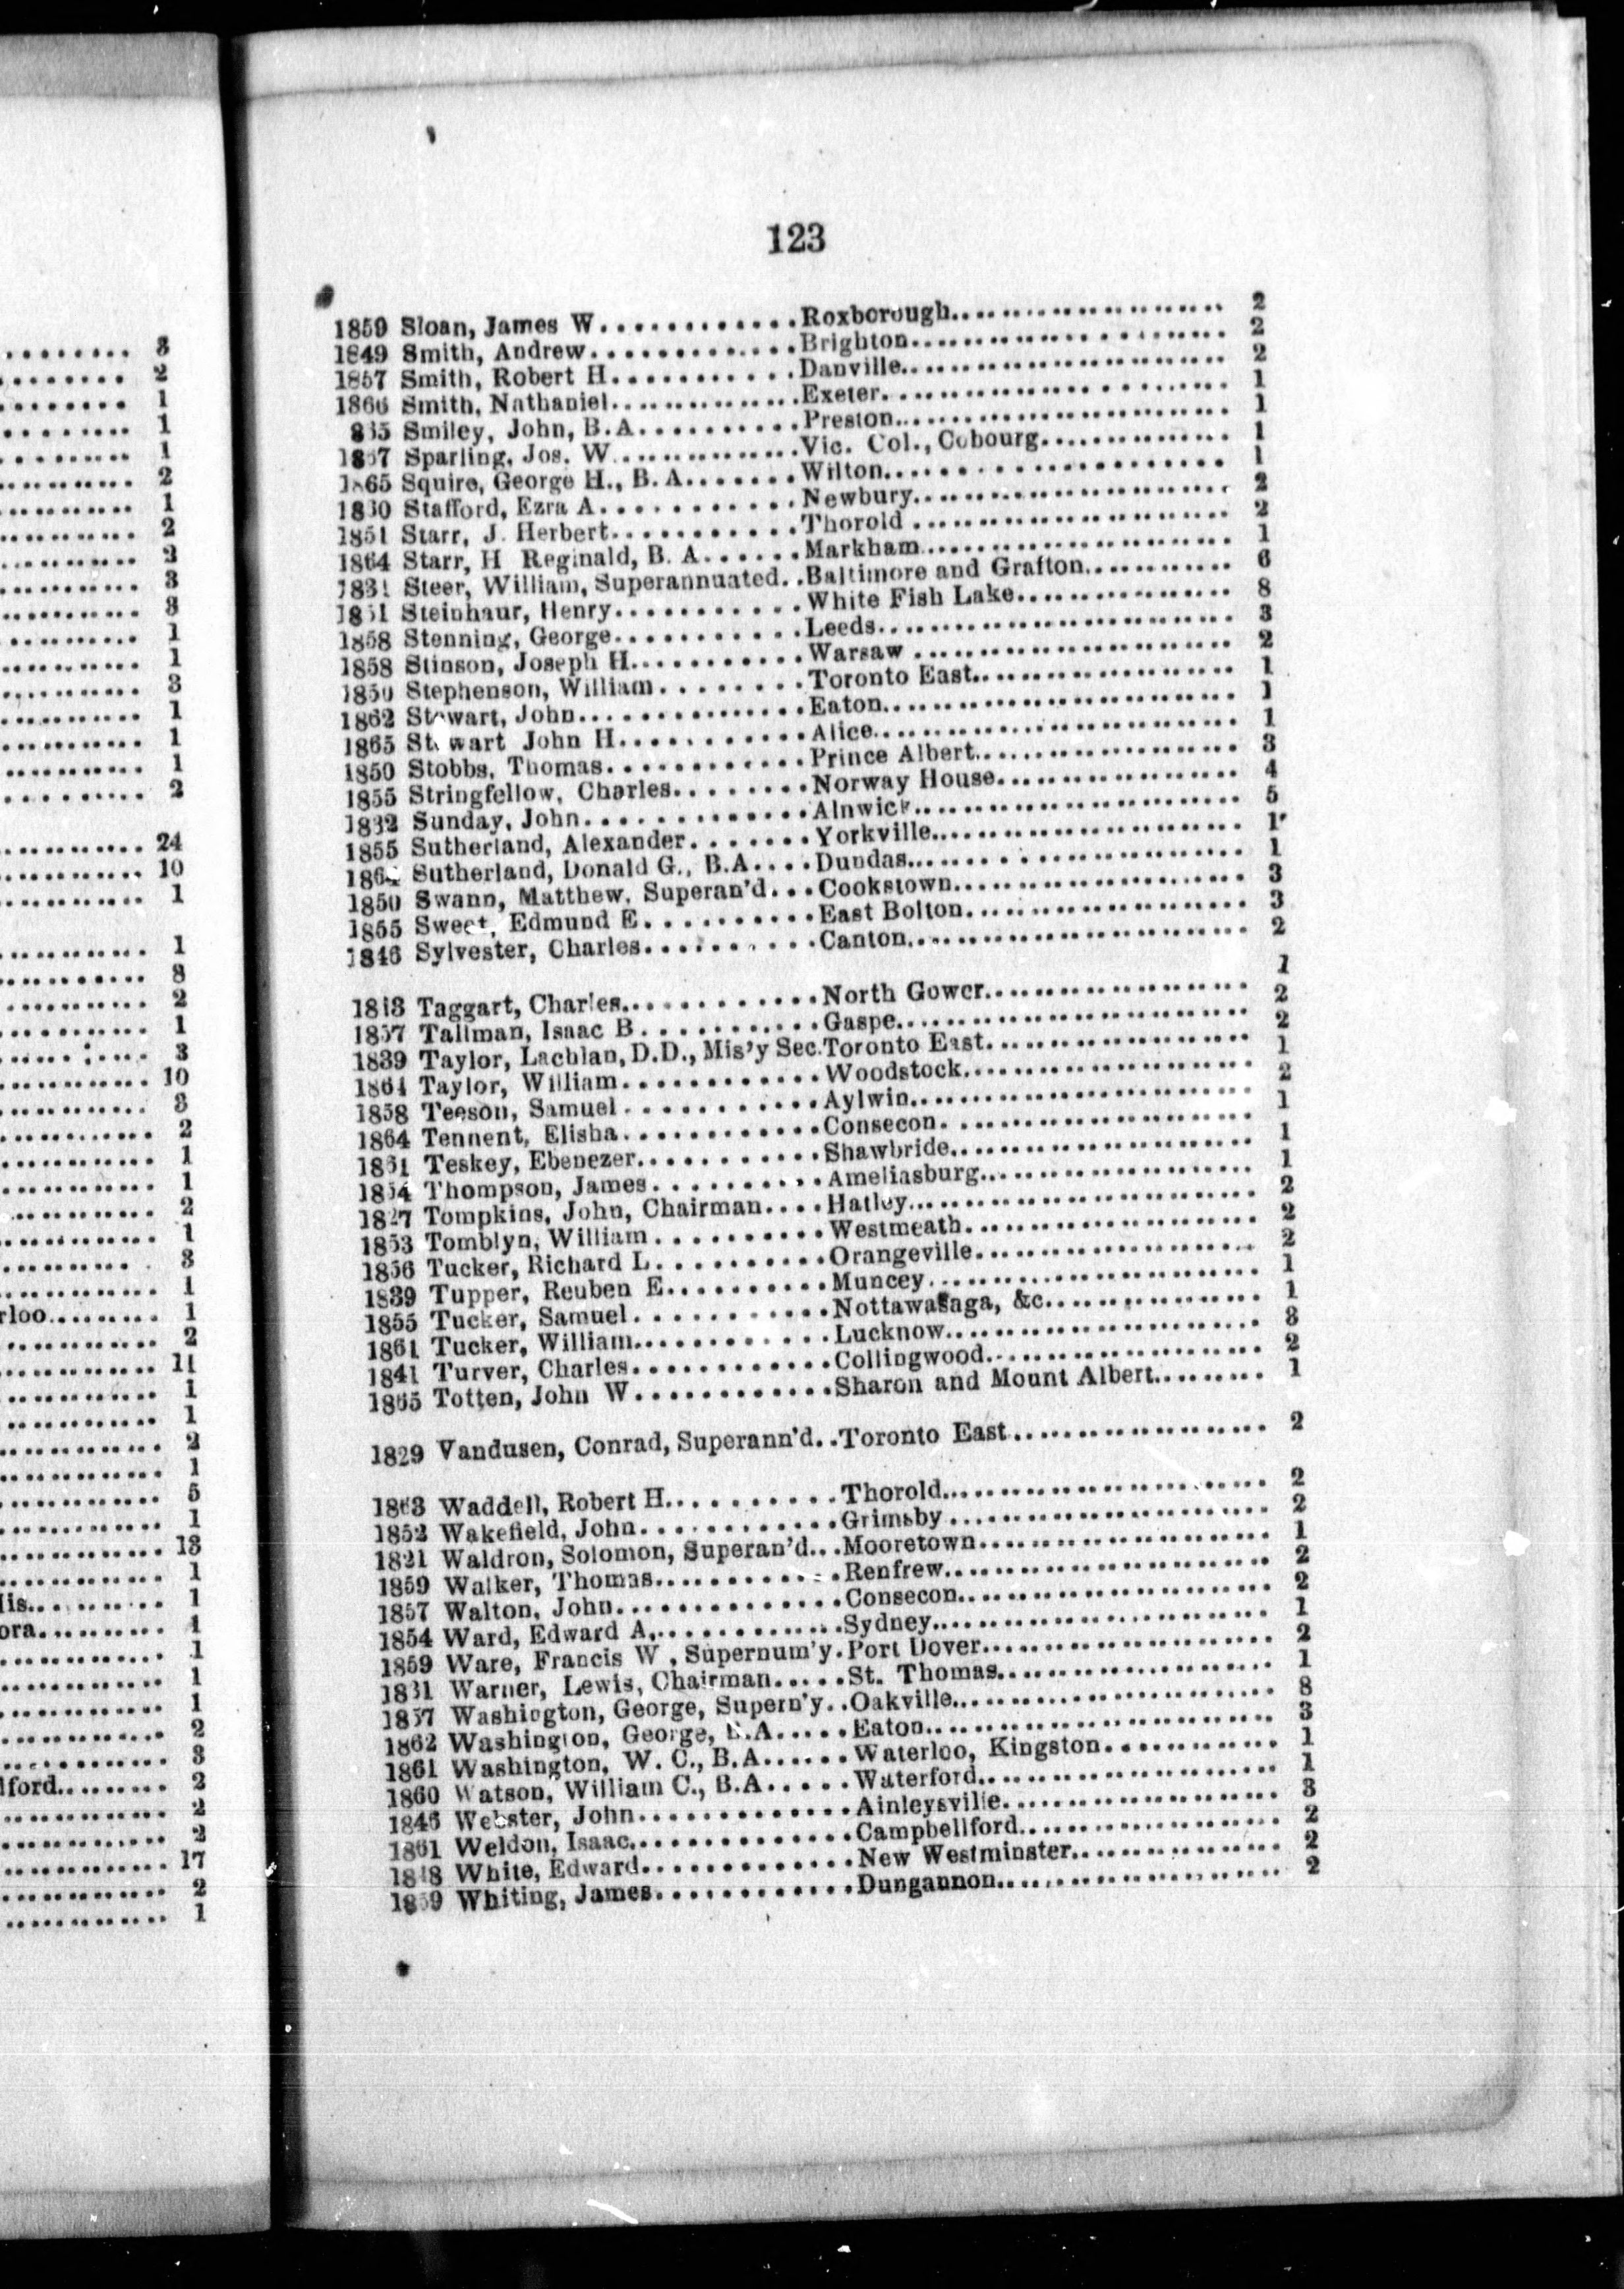 3
2
1
1
1
2
1
2
3
3
3
1
1
3
1
1
1
2
24
10
1
1
8
2
1
3
10
3
2
1
1
2
1
3
1
rloo......... 1
2
11
1
1
2
1
5
1
13
1
lis........... 1
ora.......... 1
1
1
1
2
3
lford......... 2
2
2
17
2
1
123
1859 Sloan, James W............Roxborough...................... 2
1849 Smith, Andrew.............Brighton...................... 2
1857 Smith, Robert H...........Danville...................... 2
1866 Smith, Nathaniel..............Exeter...................... 1
835 Smiley, John, B.A..........Preston...................... 1
1857 Sparling, Jos. W..............Vic. Col., Cobourg.............. 1
1865 Squire, George H., B. A.......Wilton...................... 1
1830 Stafford, Ezra A............Newbury...................... 2
1851 Starr, J. Herbert...........Thorold ...................... 2
1864 Starr, H Reginald, B. A......Markham...................... 1
1831 Steer, William, Superannuated..Baltimore and Grafton........... 6
1851 Steinhaur, Henry...........White Fish Lake................ 8
1858 Stenning, George...........Leeds...................... 3
1858 Stinson, Joseph H...........Warsaw ...................... 2
1850 Stephenson, William........Toronto East................... 1
1862 Stewart, John..............Eaton...................... 1
1865 Stewart John H............Alice...................... 1
1850 Stobbs, Thomas............Prince Albert.................... 3
1855 Stringfellow, Charles........Norway House.................. 4
1832 Sunday, John.............Alnwick...................... 5
1855 Sutherland, Alexander.......Yorkville...................... 1
1864 Sutherland, Donald G., B.A....Dundas...................... 1
1850 Swann, Matthew, Superan'd...Cookstown...................... 3
1855 Sweet, Edmund E..........East Bolton...................... 3
1846 Sylvester, Charles..........Canton...................... 2
1813 Taggart, Charles............North Gower.................... 1
1857 Tallman, Isaac B...........Gaspe...................... 2
1839 Taylor, Lachlan, D.D., Mis'y Sec.Toronto East.................... 2
1864 Taylor, William............Woodstock...................... 1
1858 Teeson, Samuel............Aylwin...................... 2
1864 Tennent, Elisha............Consecon...................... 1
1861 Teskey, Ebenezer...........Shawbride...................... 1
1854 Thompson, James..........Ameliasburg.................... 1
1827 Tompkins, John, Chairman....Hatley...................... 2
1853 Tomblyn, William..........Westmeath...................... 2
1856 Tucker, Richard L..........Orangeville...................... 2
1839 Tupper, Reuben E..........Muncey...................... 1
1855 Tucker, Samuel............Nottawasaga, &c................ 1
1861 Tucker, William............Lucknow...................... 3
1841 Turver, Charles............Collingwood...................... 2
1865 Totten, John W............Sharon and Mount Albert......... 1
1829 Vandusen, Conrad, Superann'd..Toronto East................... 2
1863 Waddell, Robert H..........Thorold...................... 2
1852 Wakefield, John............Grimsby ...................... 2
1821 Waldron, Solomon, Superan'd...Mooretown...................... 1
1859 Walker, Thomas............Renfrew...................... 2
1857 Walton, John..............Consecon...................... 2
1854 Ward, Edward A.............Sydney...................... 1
1859 Ware, Francis W , Supernum'y.Port Dover...................... 2
1831 Warner, Lewis, Chairman.....St. Thomas...................... 1
1857 Washington, George, Supern'y..Oakville...................... 8
1862 Washington, George, B.A.....Eaton...................... 3
1861 Washington, W. C., B.A......Waterloo, Kingston............. 1
1860 Watson, William C., B.A.....Waterford...................... 1
1846 Webster, John.............Ainleysville...................... 3
1861 Weldon, Isaac..............Campbellford.................... 2
1848 White, Edward.............New Westminster................ 2
1859 Whiting, James............Dungannon...................... 2